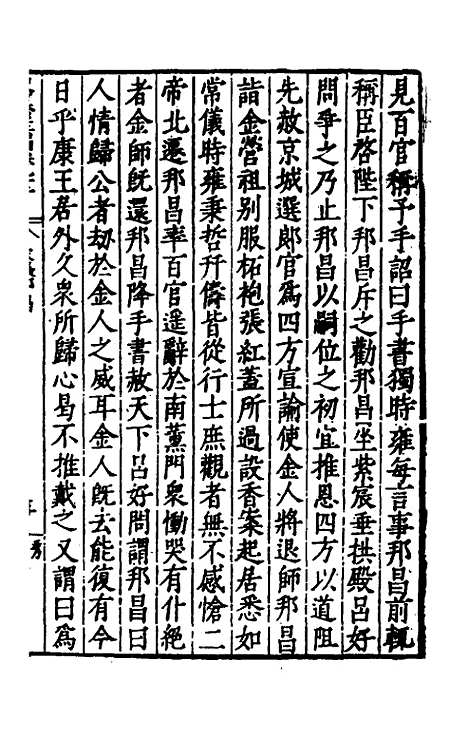 見百官稱予手詔曰手書獨時雍每言事邦昌前輒
稱臣啓陛下邦昌斥之勸邦昌坐紫宸垂拱殿吕好
問爭之乃止邦昌以嗣位之初宜推恩四方以道阻
先赦京城選郎官爲四方宣諭使金人將退師邦昌
詣金營祖别服柘袍張紅蓋所過設香案起居悉如
常儀時雍秉哲幵儔皆從行士庶觀者無不感愴二
帝北遷邦昌率百官遥辭於南薰門衆慟哭有仆絶
者金師旣還邦昌降手書赦天下吕好問謂邦昌曰
人情歸公者劫於金人之威耳金人旣去能復有今
日乎康王居外久衆所歸心曷不推戴之又謂曰爲